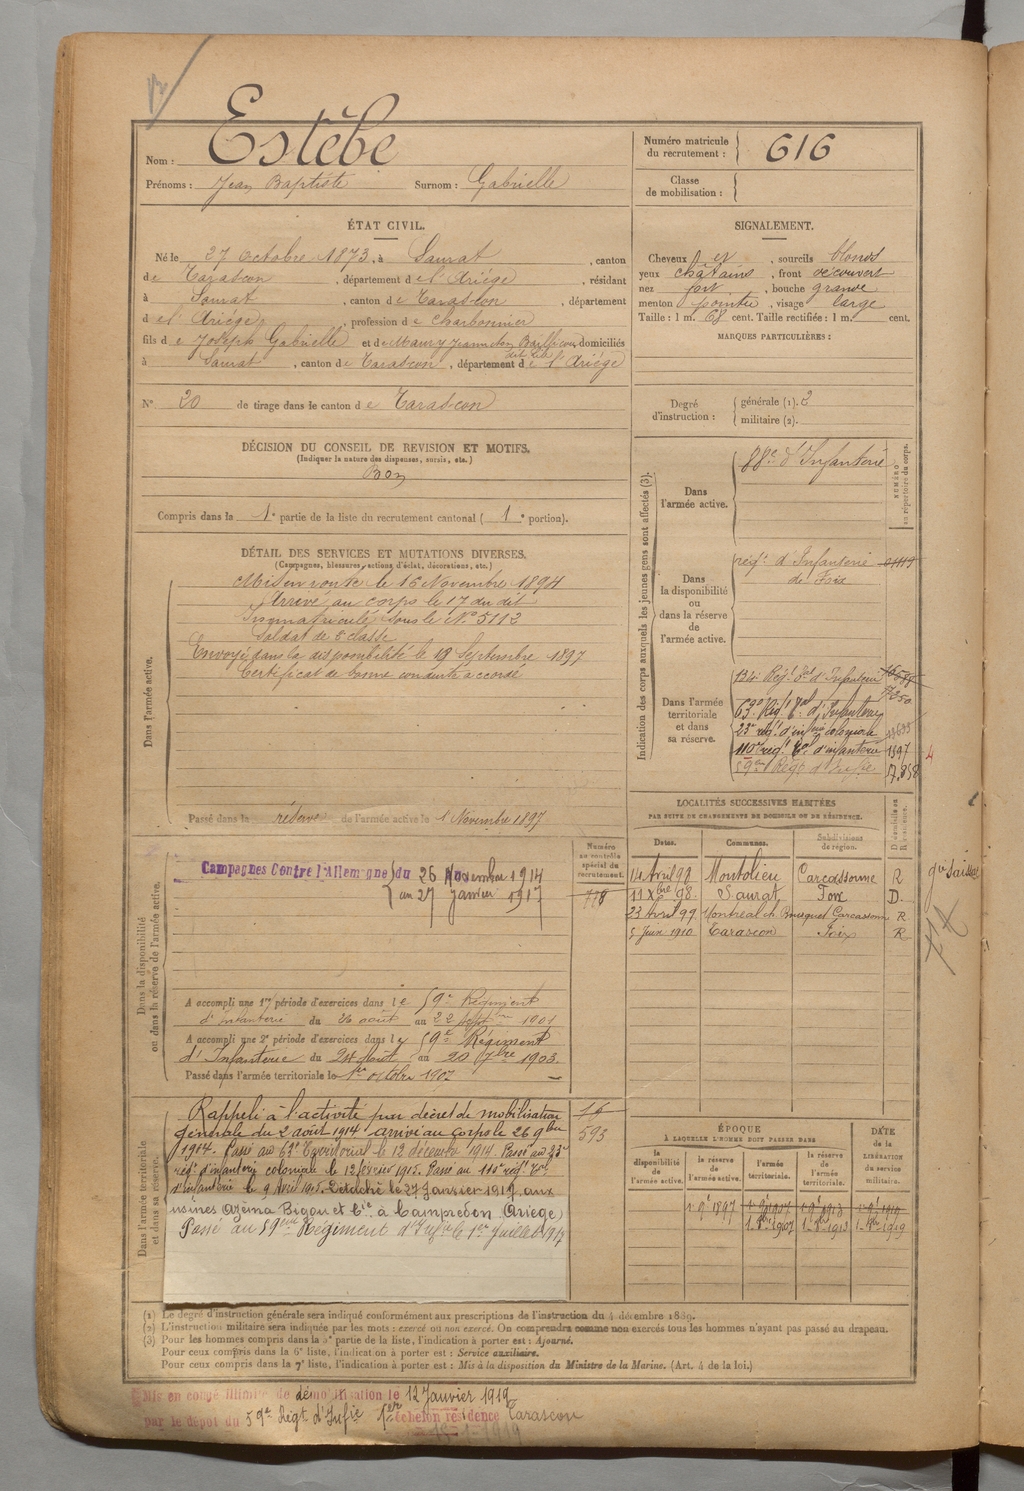 Nom : Estèbe
Prénoms : Jean Baptiste Surnom : Gabrielle
Numéro matricule du recrutement : 616
Classe de mobilisation :
ÉTAT CIVIL.
Né le 27 octobre 1873, à Saurat, canton
de Tarascon, département de l'Ariège, résidant
à Saurat, canton de Tarascon, département
de l'Ariège, profession de charbonnier
fils de Joseph Gabrielle et de Maury Jeanne domiciliés
à Saurat, canton de Tarascon, département de l'Ariège
N° 20 de tirage dans le canton de Tarascon
SIGNALEMENT.
Cheveux et, sourcils blonds
yeux châtains, front découvert
nez fort, bouche grande
menton pointu, visage large
Taille : 1 m. 68 cent. Taille rectifiée : 1 m. cent.
MARQUES PARTICULIÈRES :
Degré d'instruction : générale (1). 2
militaire (2).
DÉCISION DU CONSEIL DE REVISION ET MOTIFS.
(Indiquer la nature des dispenses, sursis, etc.)
Bon
Compris dans la 1e partie de la liste du recrutement cantonal ( 1e portion).
DÉTAIL DES SERVICES ET MUTATIONS DIVERSES.
(Campagnes, blessures, actions d'éclat, décorations, etc.)
Dans l'armée active.
Mis en route le 16 Novembre 1894
Arrivé au corps le 17 du dit
Immatriculé sous le N° 5112
Soldat de 2 classe
Envoyé dans la disponibilité le 19 Septembre 1897
Certificat de bonne conduite accordé
Passé dans la réserve de l'armée active le 1 Novembre 1897
Indication des corps auxquels les jeunes gens sont affectés (3).
NUMÉRO au répertoire du corps.
Dans l'armée active.
88e d'Infanterie
Dans la disponibilité ou dans la réserve de l'armée active.
régt d'Infanterie
de Foix
Dans l'armée territoriale et dans sa réserve.
134 Régt d'Infanterie
63e Régt d'Infanterie
23e régt d'infrie coloniale
110e régt d'infanterie 1397
59ème Régt d'Infie
Dans la disponibilité ou dans la réserve de l'armée active.
Numéro au contrôle spécial du recrutement.
Campagnes Contre l'Allemagne du 26 Novembre 1914
au 27 janvier 1917
A accompli une 1re période d'exercices dans le 59e Régiment
d'Infanterie du 26 août au 22 septbre 1901
A accompli une 2e période d'exercices dans le 59e Régiment
d'Infanterie du 24 Août au 20 7bre 1903.
Passé dans l'armée territoriale le 1er octobre 1907
LOCALITÉS SUCCESSIVES HABITÉES
PAR SUITE DE CHANGEMENTS DE DOMICILE OU DE RÉSIDENCE.
Dates. Communes. Subdivisions de région. D domicile ou R résidence.
14 Avril 98 Montolieu Carcassonne R
11 Xbre 98. Saurat Foix D.
23 Avril 99. Carcassonne R
5 Juin 1910 Tarascon Foix R
Dans l'armée territoriale et dans sa réserve.
Rappelé à l'activité par décret de mobilisation
générale du 2 août 1914 arrivé au corps le 26 9bre
1914. Passé au 63e Territorial le 12 décembre 1914. Passé au 23e
régt d'infanterie coloniale le 12 février 1915. Passé au 110e régt
d'infanterie le 9 Avril 1915. Détaché le 27 Janvier 1917, aux
usines Azema Bigou et Cie à Campredon (Ariège)
Passé au 59ème Régiment d'Infie le 1er Juillet 1917
593
ÉPOQUE
A LAQUELLE L'HOMME DOIT PASSER DANS
la disponibilité de l'armée active. la réserve de l'armée active. l'armée territoriale. la réserve de l'armée territoriale. DATE de la LIBÉRATION du service militaire.
1 9e 1897 1 9e 1907 1 9e 1913 1 9e 1919
(1) Le degré d'instruction générale sera indiqué conformément aux prescriptions de l'instruction du 4 décembre 1889.
(2) L'instruction militaire sera indiquée par les mots : exercé ou non exercé. On comprendra comme non exercés tous les hommes n'ayant pas passé au drapeau.
(3) Pour les hommes compris dans la 5e partie de la liste, l'indication à porter est : Ajourné.
Pour ceux compris dans la 6e liste, l'indication à porter est : Service auxiliaire.
Pour ceux compris dans la 7e liste, l'indication à porter est : Mis à la disposition du Ministre de la Marine. (Art. 4 de la loi.)
Mis en congé illimité de démobilisation le 12 Janvier 1919
par le dépôt du 59e Régt d'Infie 1er échelon résidence Tarascon